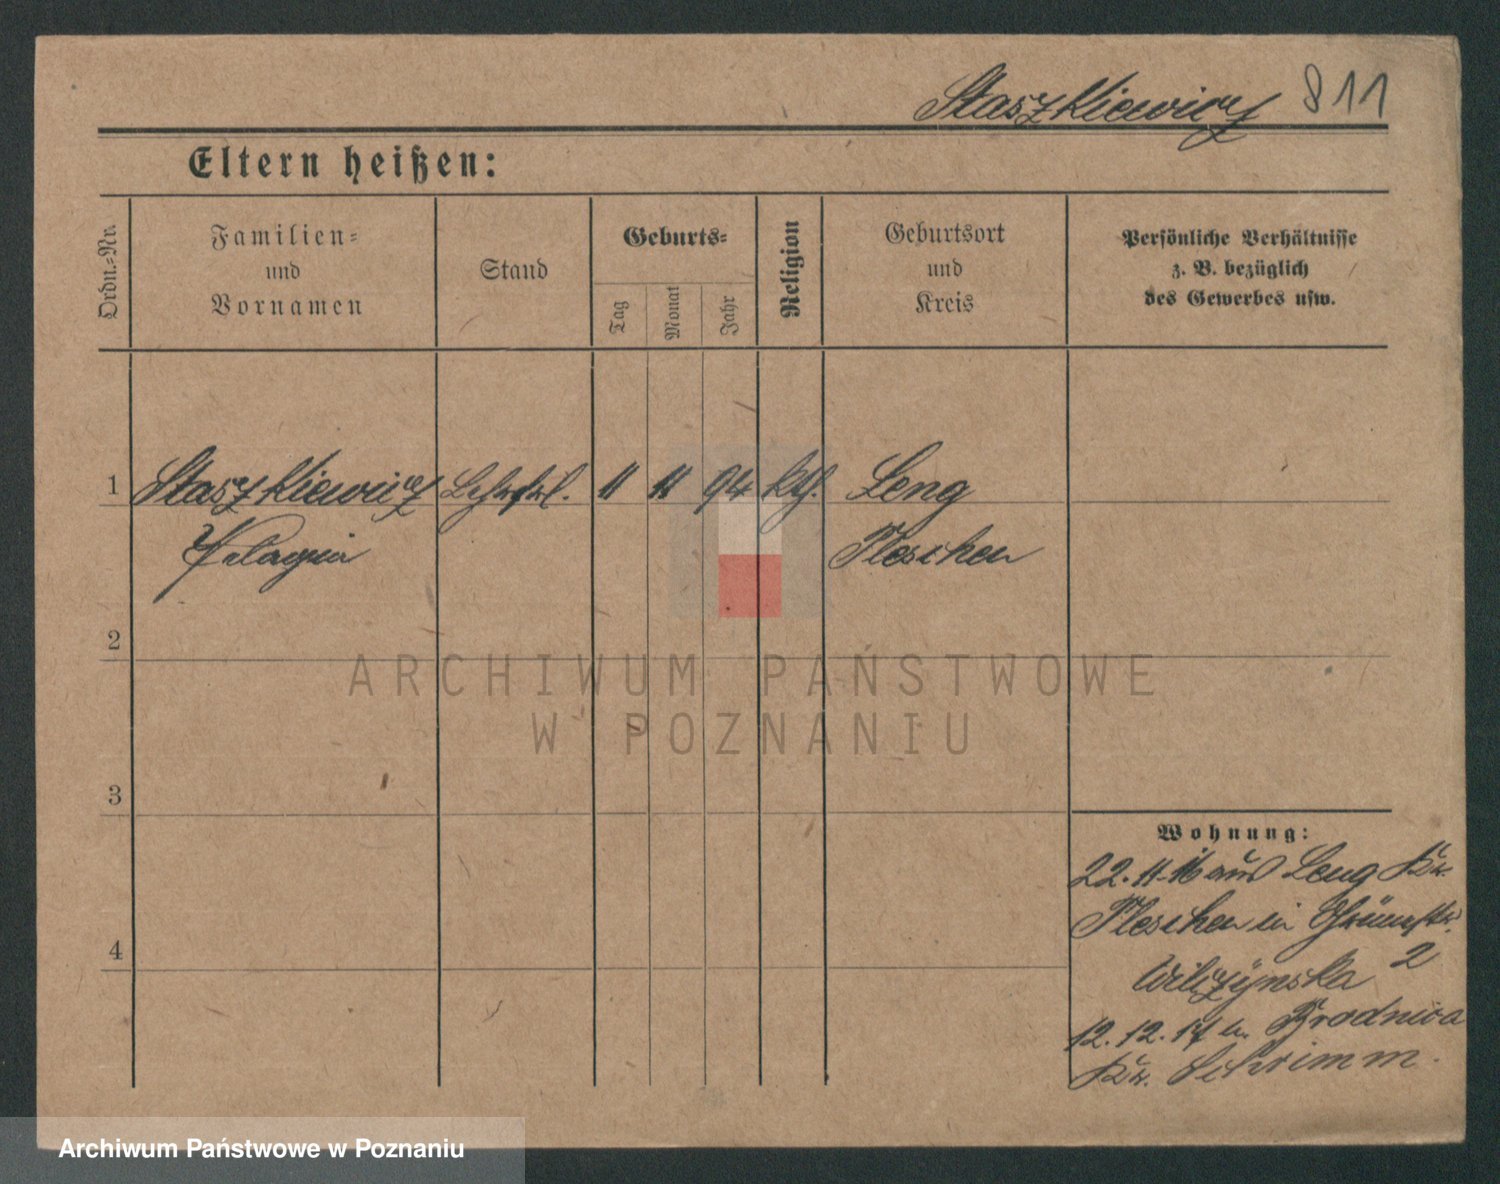 Staszkiewicz 811
Eltern heißen:
Ordn.-Nr.
Familien-
und
Vornamen
Stand
Geburts-
Tag
Monat
Jahr
Religion
Geburtsort
und
Kreis
Persönliche Verhältnisse
z. B. bezüglich
des Gewerbes usw.
1 Staszkiewicz Lehrfrl. 11 11 94 kth. Leng
Pelagia Pleschen
2
3
4
Wohnung:
22.11.16 aus Leng Kr.
Pleschen in
Wilczynska 2
12.12.17 n. Brodnica
Kr. Schrimm.
ARCHIWUM PAŃSTWOWE
W POZNANIU
Archiwum Państwowe w Poznaniu